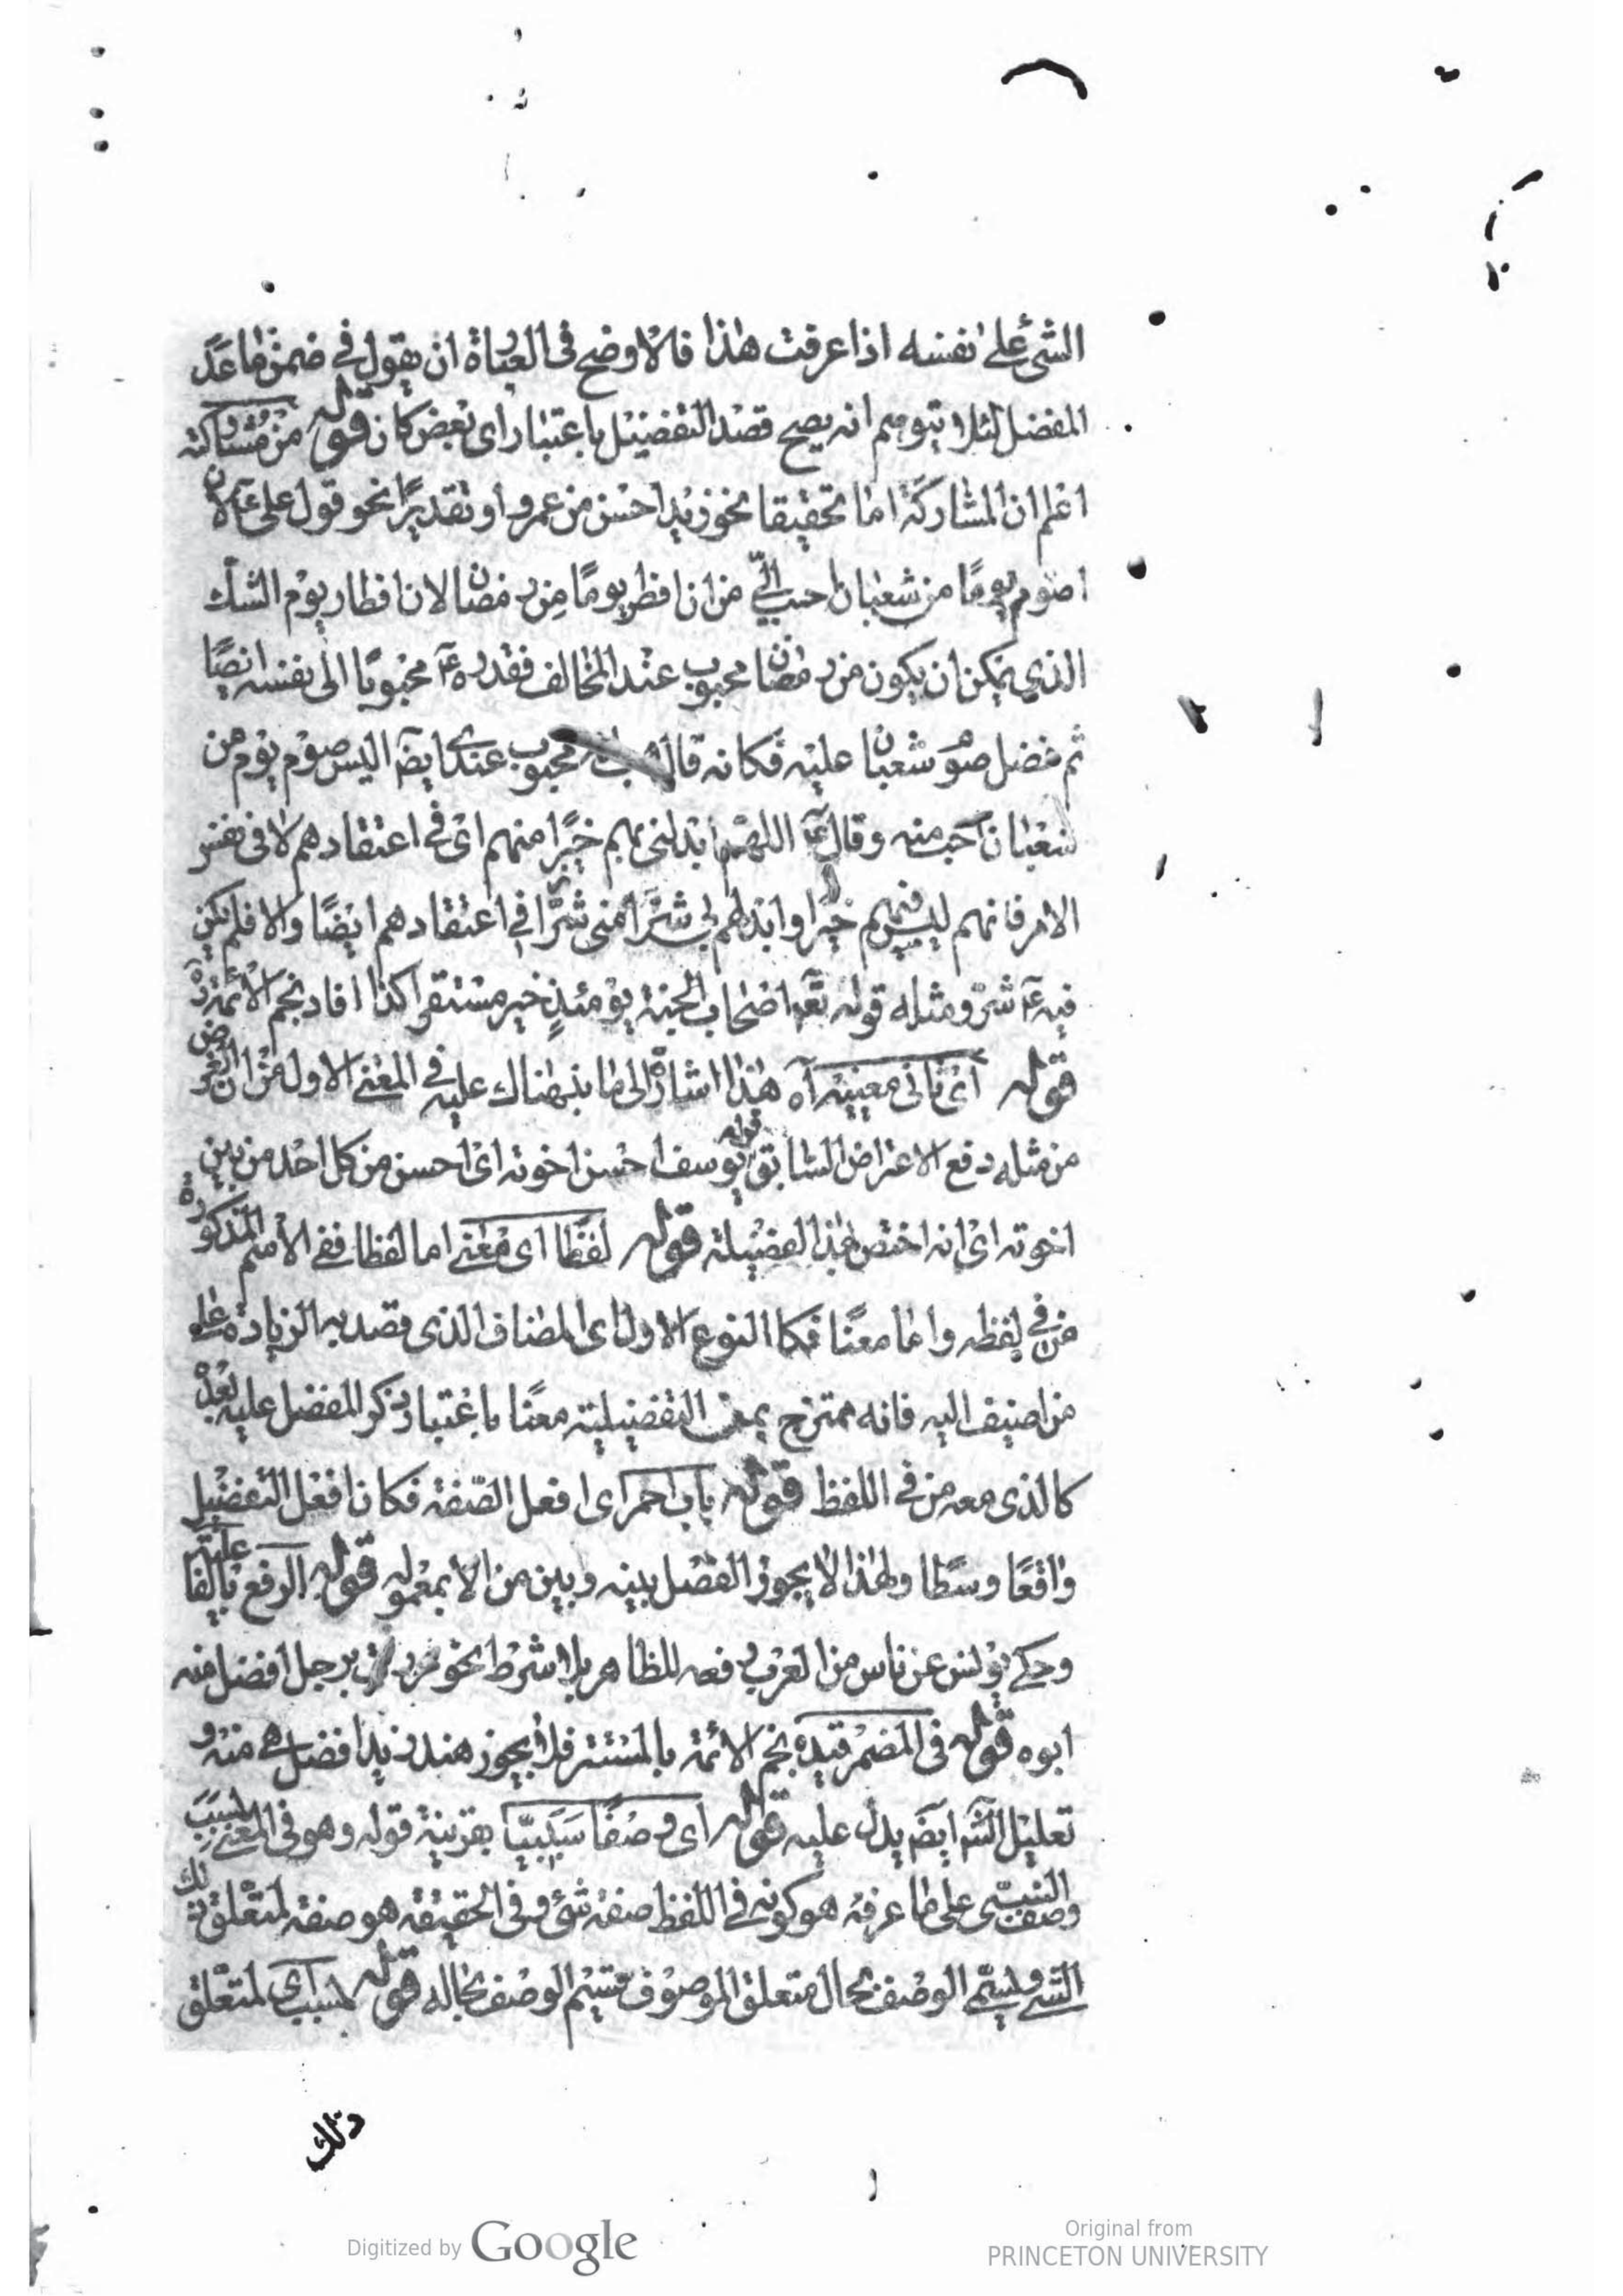 الشئ على نفسه اذا عرفت هذا فالاوضح فى العبارة ان يقول فى ضمن ما عدّ
المفضل لئلا يتوهم انه يصح قصد التفضيل باعتبار اى بعض كان قوله من مشاركته
اعلم ان المشاركة اما تحقيقا نحو زيد احسن من عمرو او تقديرًا نحو قول على ع لان
اصوم يومًا من شعبان احب الىّ من ان افطر يومًا من رمضان لان افطار يوم الشك
الذى يمكن ان يكون من رمضان محبوب عند المخالف فقدره ع محبوبًا الى نفسه ايضًا
ثم فضل صوم شعبان عليه فكانه قال محبوب عندى ايضا اليس صوم يوم من
شعبان احب منه وقال ع اللهم ابدلنى بهم خيرًا منهم اى فى اعتقادهم لا فى نفس
الامر فانهم ليس فيهم خيرا وابدلهم بى شرًا منى شرًا فى اعتقادهم ايضًا والا فلم يكن
فيه ع شر ومثله قوله تع اصحاب الجنة يومئذٍ خير مستقرا كذا افاد نجم الائمة رض
قوله اى ثانى معنييه آه هذا اشارة الى ما نبهناك عليه فى المعنى الاول من ان الغرض
من مثله دفع الاعتراض السابق قوله يوسف احسن اخوته اى احسن من كل احد من بين
اخوته اى انه اختص بهذا الفضيلة قوله لفظا اى معنى اما لفظا ففى الاسم المذكورة
من فى لفظه واما معنًا فكما النوع الاول اى المضاف الذى قصد به الزيادة على
من اضيف اليه فانه ممتزج بمن التفضيلية معنًا باعتبار ذكر المفضل عليه بعده
كالذى معه من فى اللفظ قوله باب احمر اى افعل الصّفة فكان افعل التفضيل
واقعًا وسطا ولهذا لا يجوز الفصل بينه وبين من الا بمعموله قوله الرفع بالفاعلية
وحكى يونس عن ناس من العرب رفعه للظاهر بلا شرط نحو مررت برجل افضل منه
ابوه قوله فى المضمر قيده نجم الائمة بالمستتر فلا يجوز هند زيد افضل هى منه و
تعليل الشم ايضا يدل عليه قوله اى وصفًا سَبَبيّا بقرينة قوله وهو فى المعنى لمسبب
وصف السببى على ما عرفة هو كونه فى اللفظ صفة شئ وفى الحقيقة هو صفة لمتعلق ذلك
الشئ ويسمّى الوصف بحال متعلق الموصوف قسيم الوصف بحاله قوله لمسبب اى لمتعلق
ذلك
Digitized by Google
Original from
PRINCETON UNIVERSITY